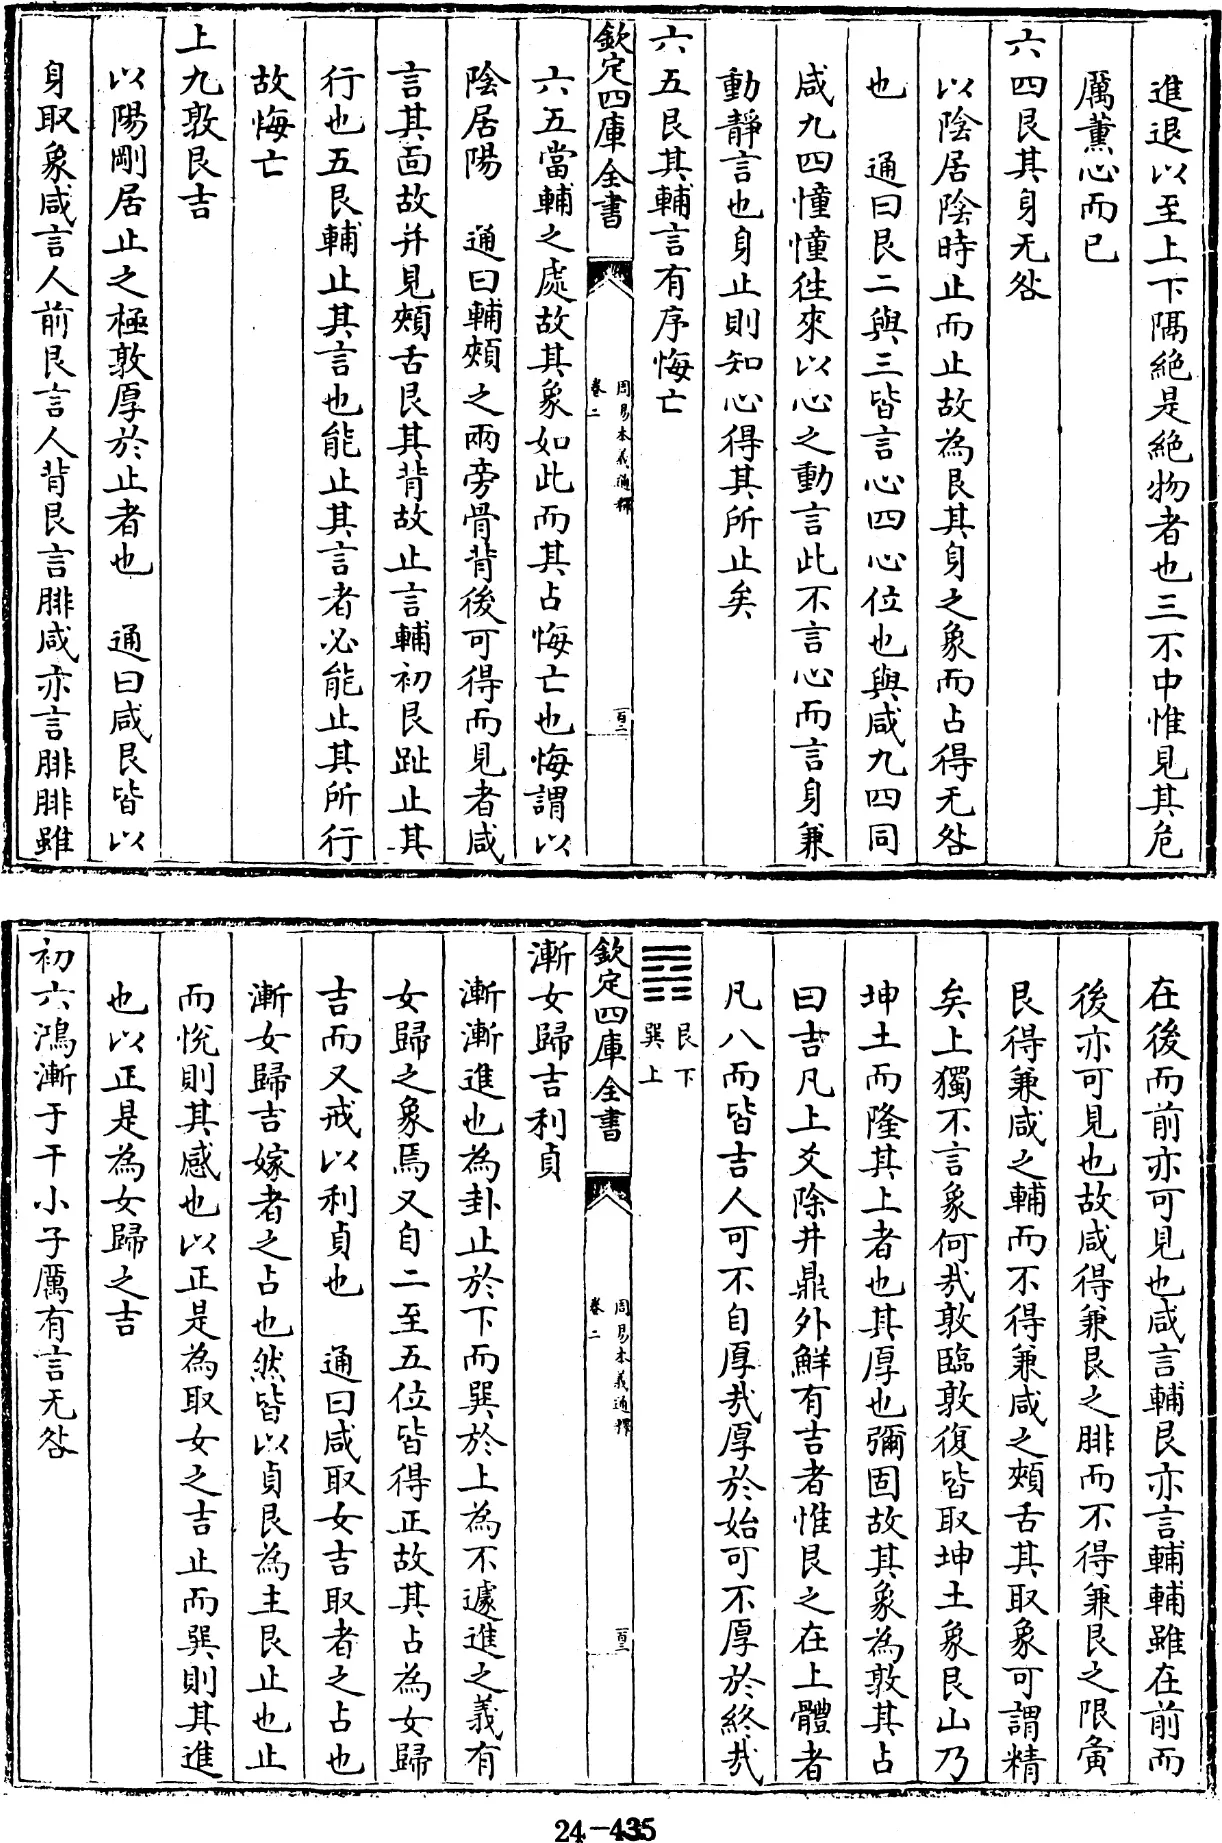 進退以至上下隔絶是絶物者也三不中惟見其危
厲薰心而已
六四艮其身无咎
以陰居陰時止而止故為艮其身之象而占得无咎
也　通曰艮二與三皆言心四心位也與咸九四同
咸九四憧憧徃來以心之動言此不言心而言身兼
動靜言也身止則知心得其所止矣
六五艮其輔言有序悔亡
欽定四庫全書
周易本義通釋
卷二
百二
六五當輔之處故其象如此而其占悔亡也悔謂以
陰居陽　通曰輔頰之兩旁骨背後可得而見者咸
言其面故并見頰舌艮其背故止言輔初艮趾止其
行也五艮輔止其言也能止其言者必能止其所行
故悔亡
上九敦艮吉
以陽剛居止之極敦厚於止者也　通曰咸艮皆以
身取象咸言人前艮言人背艮言腓咸亦言腓腓雖
在後而前亦可見也咸言輔艮亦言輔輔雖在前而
後亦可見也故咸得兼艮之腓而不得兼艮之限夤
艮得兼咸之輔而不得兼咸之頰舌其取象可謂精
矣上獨不言象何㦲敦臨敦復皆取坤土象艮山乃
坤土而隆其上者也其厚也彌固故其象為敦其占
曰吉凡上爻除井鼎外鮮有吉者惟艮之在上體者
凡八而皆吉人可不自厚㦲厚於始可不厚於終㦲
䷴艮下
巽上
欽定四庫全書
周易本義通釋
卷二
百三
漸女歸吉利貞
漸漸進也為卦止於下而巽於上為不遽進之義有
女歸之象焉又自二至五位皆得正故其占為女歸
吉而又戒以利貞也　通曰咸取女吉取者之占也
漸女歸吉嫁者之占也然皆以貞艮為主艮止也止
而恱則其感也以正是為取女之吉止而巽則其進
也以正是為女歸之吉
初六鴻漸于干小子厲有言无咎
24-435